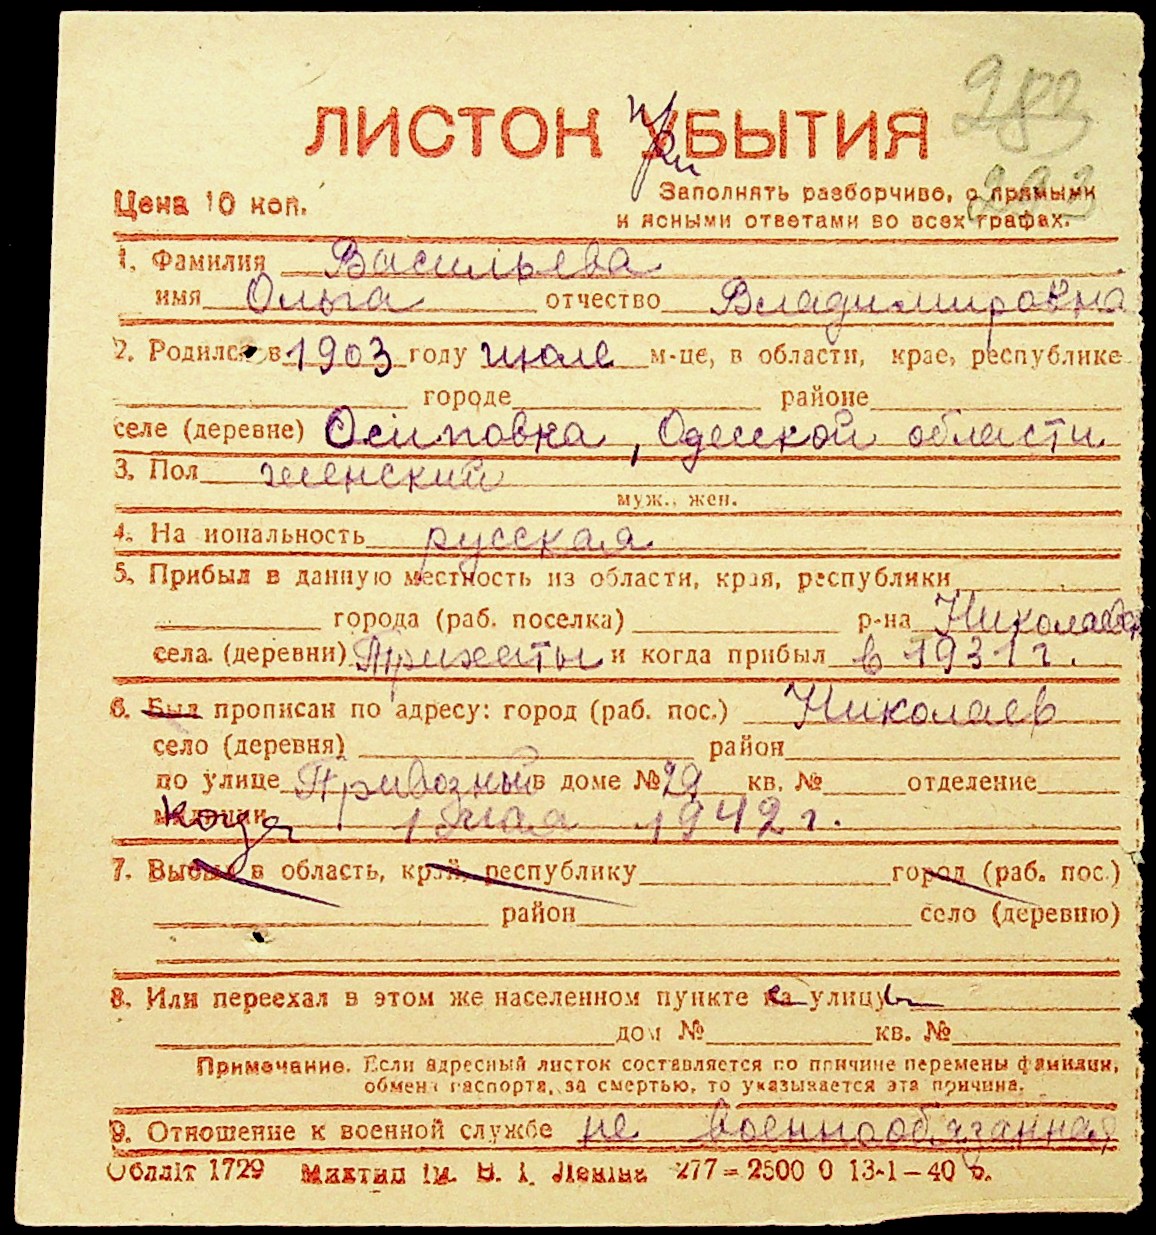 283
ЛИСТОК УБЫТИЯ
при
293
Цена 10 коп.
Заполнять разборчиво, с прямыми
и ясными ответами во всех графах.
1. Фамилия Васильева
имя Ольга отчество Владимировна
2. Родился в 1903 году июле м-це, в области, крае, республике
городе районе
селе (деревне) Осиповка, Одесской области
3. Пол женский
муж., жен.
4. На иональность русская
5. Прибыл в данную местность из области, края, республики
города (раб. поселка) р-на Николаев
села (деревни) Трихаты и когда прибыл в 1931 г.
6. Был прописан по адресу: город (раб. пос.) Николаев
село (деревня) район
по улице Привозный в доме № 29 кв. № отделение
милиции когда 1 мая 1942 г.
7. Выбыл в область, край, республику город (раб. пос.)
район село (деревню)
8. Или переехал в этом же населенном пункте на улицу
дом № кв. №
Примечание. Если адресный листок составляется по причине перемены фамилии,
обмена паспорта, за смертью, то указывается эта причина.
9. Отношение к военной службе не военнообязанная
Облліт 1729 Миктип ім. В. І. Леніна 277–2500 0 13-1–40 р.